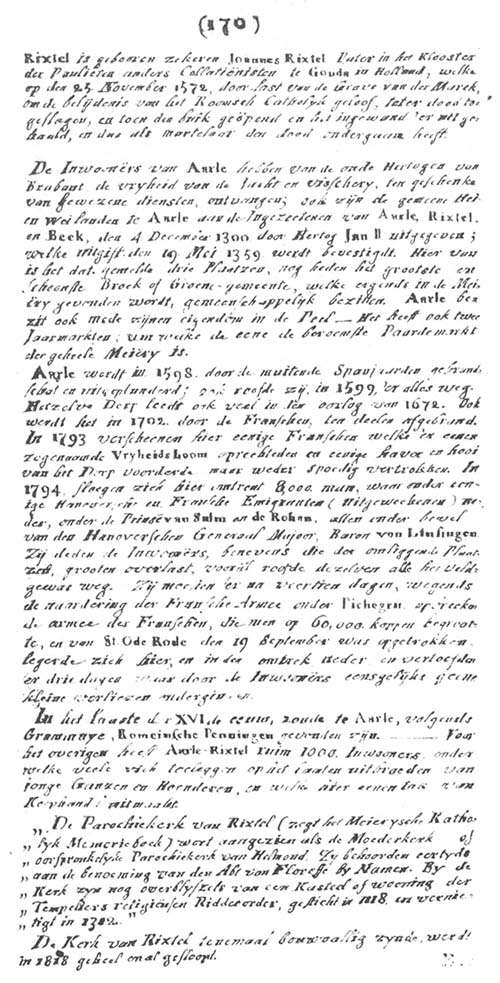 (170)
Rixtel is gebooren zekeren Joannes Rixtel Pater in het Klooster
der Pauliëten anders Collatiënisten te Gouda in Holland, welke
op den 25 November 1572, door last van de Grave van der Marck,
om de belijdenis van het Roomsch Catholyk geloof, later dood
geslagen, en toen den buik geöpend en het ingewand 'er uit ge-
haald, en dus als martelaar den dood ondergaan heeft.
De Inwooners van Aarle hebben van de oude Hertogen van
Braband de vryheid van de Jacht en visschery, ten geschenke
van bewezene diensten, ontvangen; ook zijn de gemeene Hei-
en Weilanden te Aarle aan de Ingezeetenen van Aarle, Rixtel
en Beek, den 4 December 1300 door Hertog Jan II uitgegeven;
welke uitgift den 19 Mei 1359 werdt bevestigdt. Hier van
is het dat gemelde drie Plaatzen, nog heden het grootste en
schoonste Broek of Groene-gemeente, welke ergends in de Mei-
iry gevonden wordt, gemeenschappelyk bezitten. Aarle be-
zit ook mede zijnen eigendom in de Peel — Het heeft ook twee
Jaarmarkten; van welke de eene de beroemste Paardemarkt
der geheele Meiery is.
Aarle werdt in 1598. door de muitende Spanjaarden gebrand-
schat en uitgeplunderd; ook roofde zij, in 1599, 'er alles weg.
Hetzelve Dorp leedt ook veel in den oorlog van 1672. Ook
werdt het in 1702. door de Franschen, ten deelen afgebrand.
In 1793 verscheenen hier eenige Franschen welke er eenen
zogenaamde Vryheidsboom oprechteden en eenige haver en hooi
van het Dorp voorderde maar weder spoedig vertrokken. In
1794, sloegen zich hier omtrent 8,000. man, waar onder een-
ige Hanoversche en Fransche Emigranten (Uitgeweekenen) ne-
der, onder de Prinse van Salm en de Rohan, allen onder bevel
van den Hanoverschen Generaal Majoor, Baron von Linsingen.
Zij deden de Inwooners, benevens die der omliggende Plaat-
zen, grooten overlast, vooräl roofde dezelven alle het Velde
gewas weg. Zij moesten 'er na veertien dagen, wegends
de aandering der Fransche Armee onder Pichegru, opbreken
de armee der Franschen, die men op 60,000. koppen begroot-
te, en van St. Ode Rode den 19 September was opgetrokken,
legerde zich hier, en in den omtrek neder en vertoefden
er drie dagen waar door de Inwooners eensgelijks geene
kleine verliezen ondergingen.
In het laatste der XVI.de eeuw, zoude te Aarle, volgends
Grammaye, Romeinsche Penningen gevonden zijn. — Voor
het overigen heeft Aarle-Rixtel ruim 1000. Inwooners, onder
welke veele zich toeleggen op het laaten uitbroeden van
jonge Ganzen en Hoenderen, en welke hier eenen tak van
Koophandel uitmaakt.
„ De Parochiekerk van Rixtel (zegt het Meierysch Katho-
„ lyk Memorieboek) wort aangezien als de Moederkerk of
„ oorspronkelyke Parochiekerk van Helmond. Zy behoorden eertyds
„ aan de benoeming van den Abt van Floreffe by Namen. By de
„ Kerk zyn nog overblyfzels van een Kasteel of wooning der
„ Tempeliers religieusen Ridderorder, gesticht in 1118, en vernie-
„ tigt in 1312. "
De Kerk van Rixtel tenemaal bouwvallig zynde, werdt
in 1818 geheel en al gesloopt.